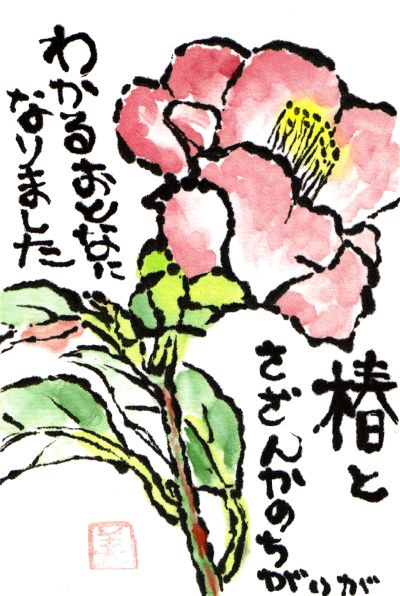 椿と
さざんかのち
がいが
わかるおとなに
なりました